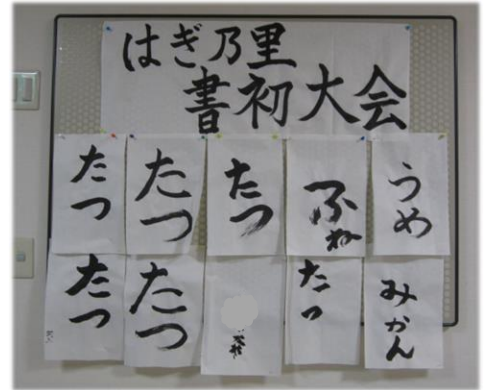 はぎ乃里
書初大会
うめ
ふね
たつ
たつ
たつ
みかん
たつ
たつ
たつ